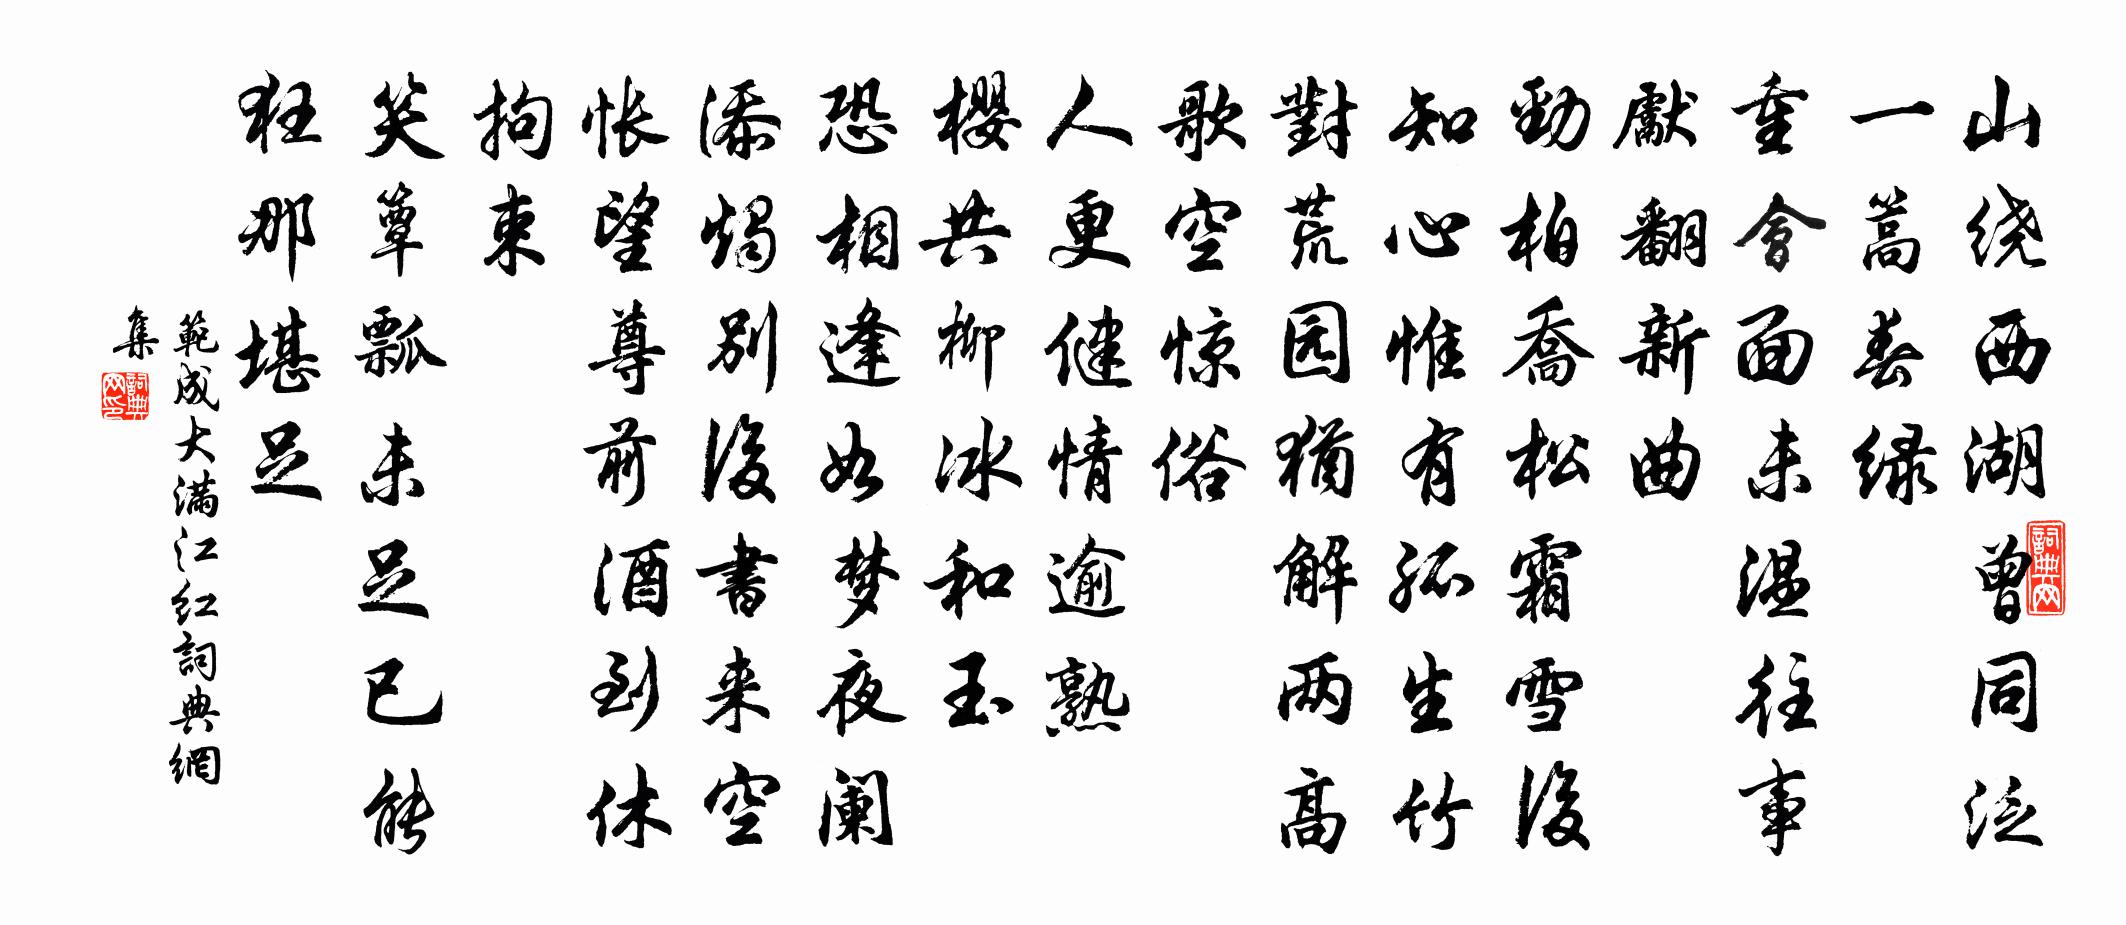 山绕西湖曾同泛
一篙春绿
重會面未温往事
獻翻新曲
勁柏喬松霜雪後
知心惟有孤生竹
對荒园猶解两高
歌空惊俗
人更健情逾熟
櫻共柳冰和玉
恐相逢如梦夜阑
添烛别後書来空
怅望尊前酒到休
拘束
笑簞瓢未足已能
狂那堪足
範成大满江红詞典網
集
詞典网
詞典网印